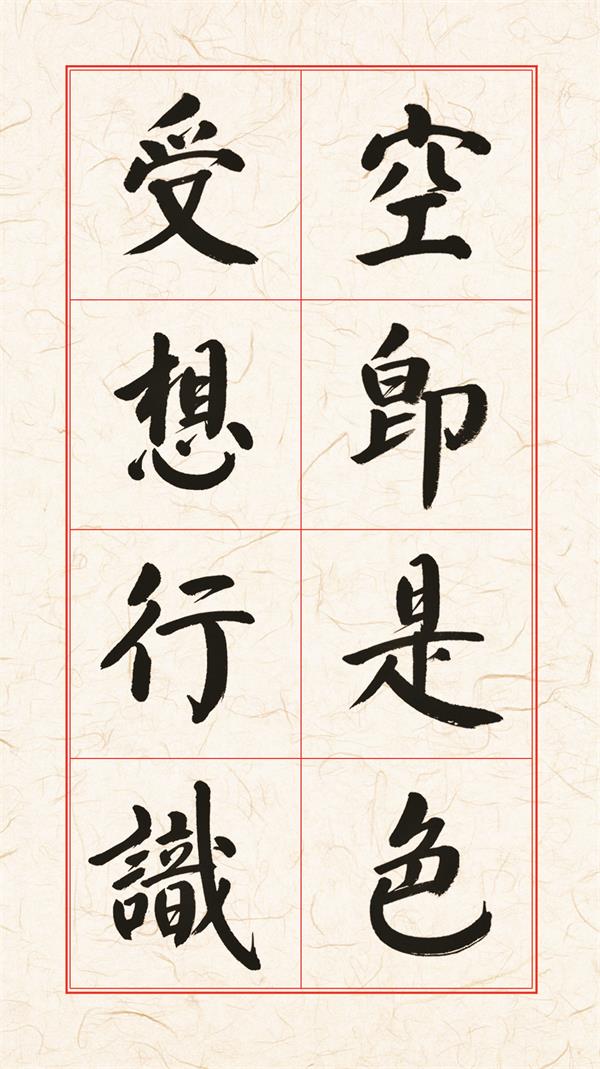 空即是色
受想行識